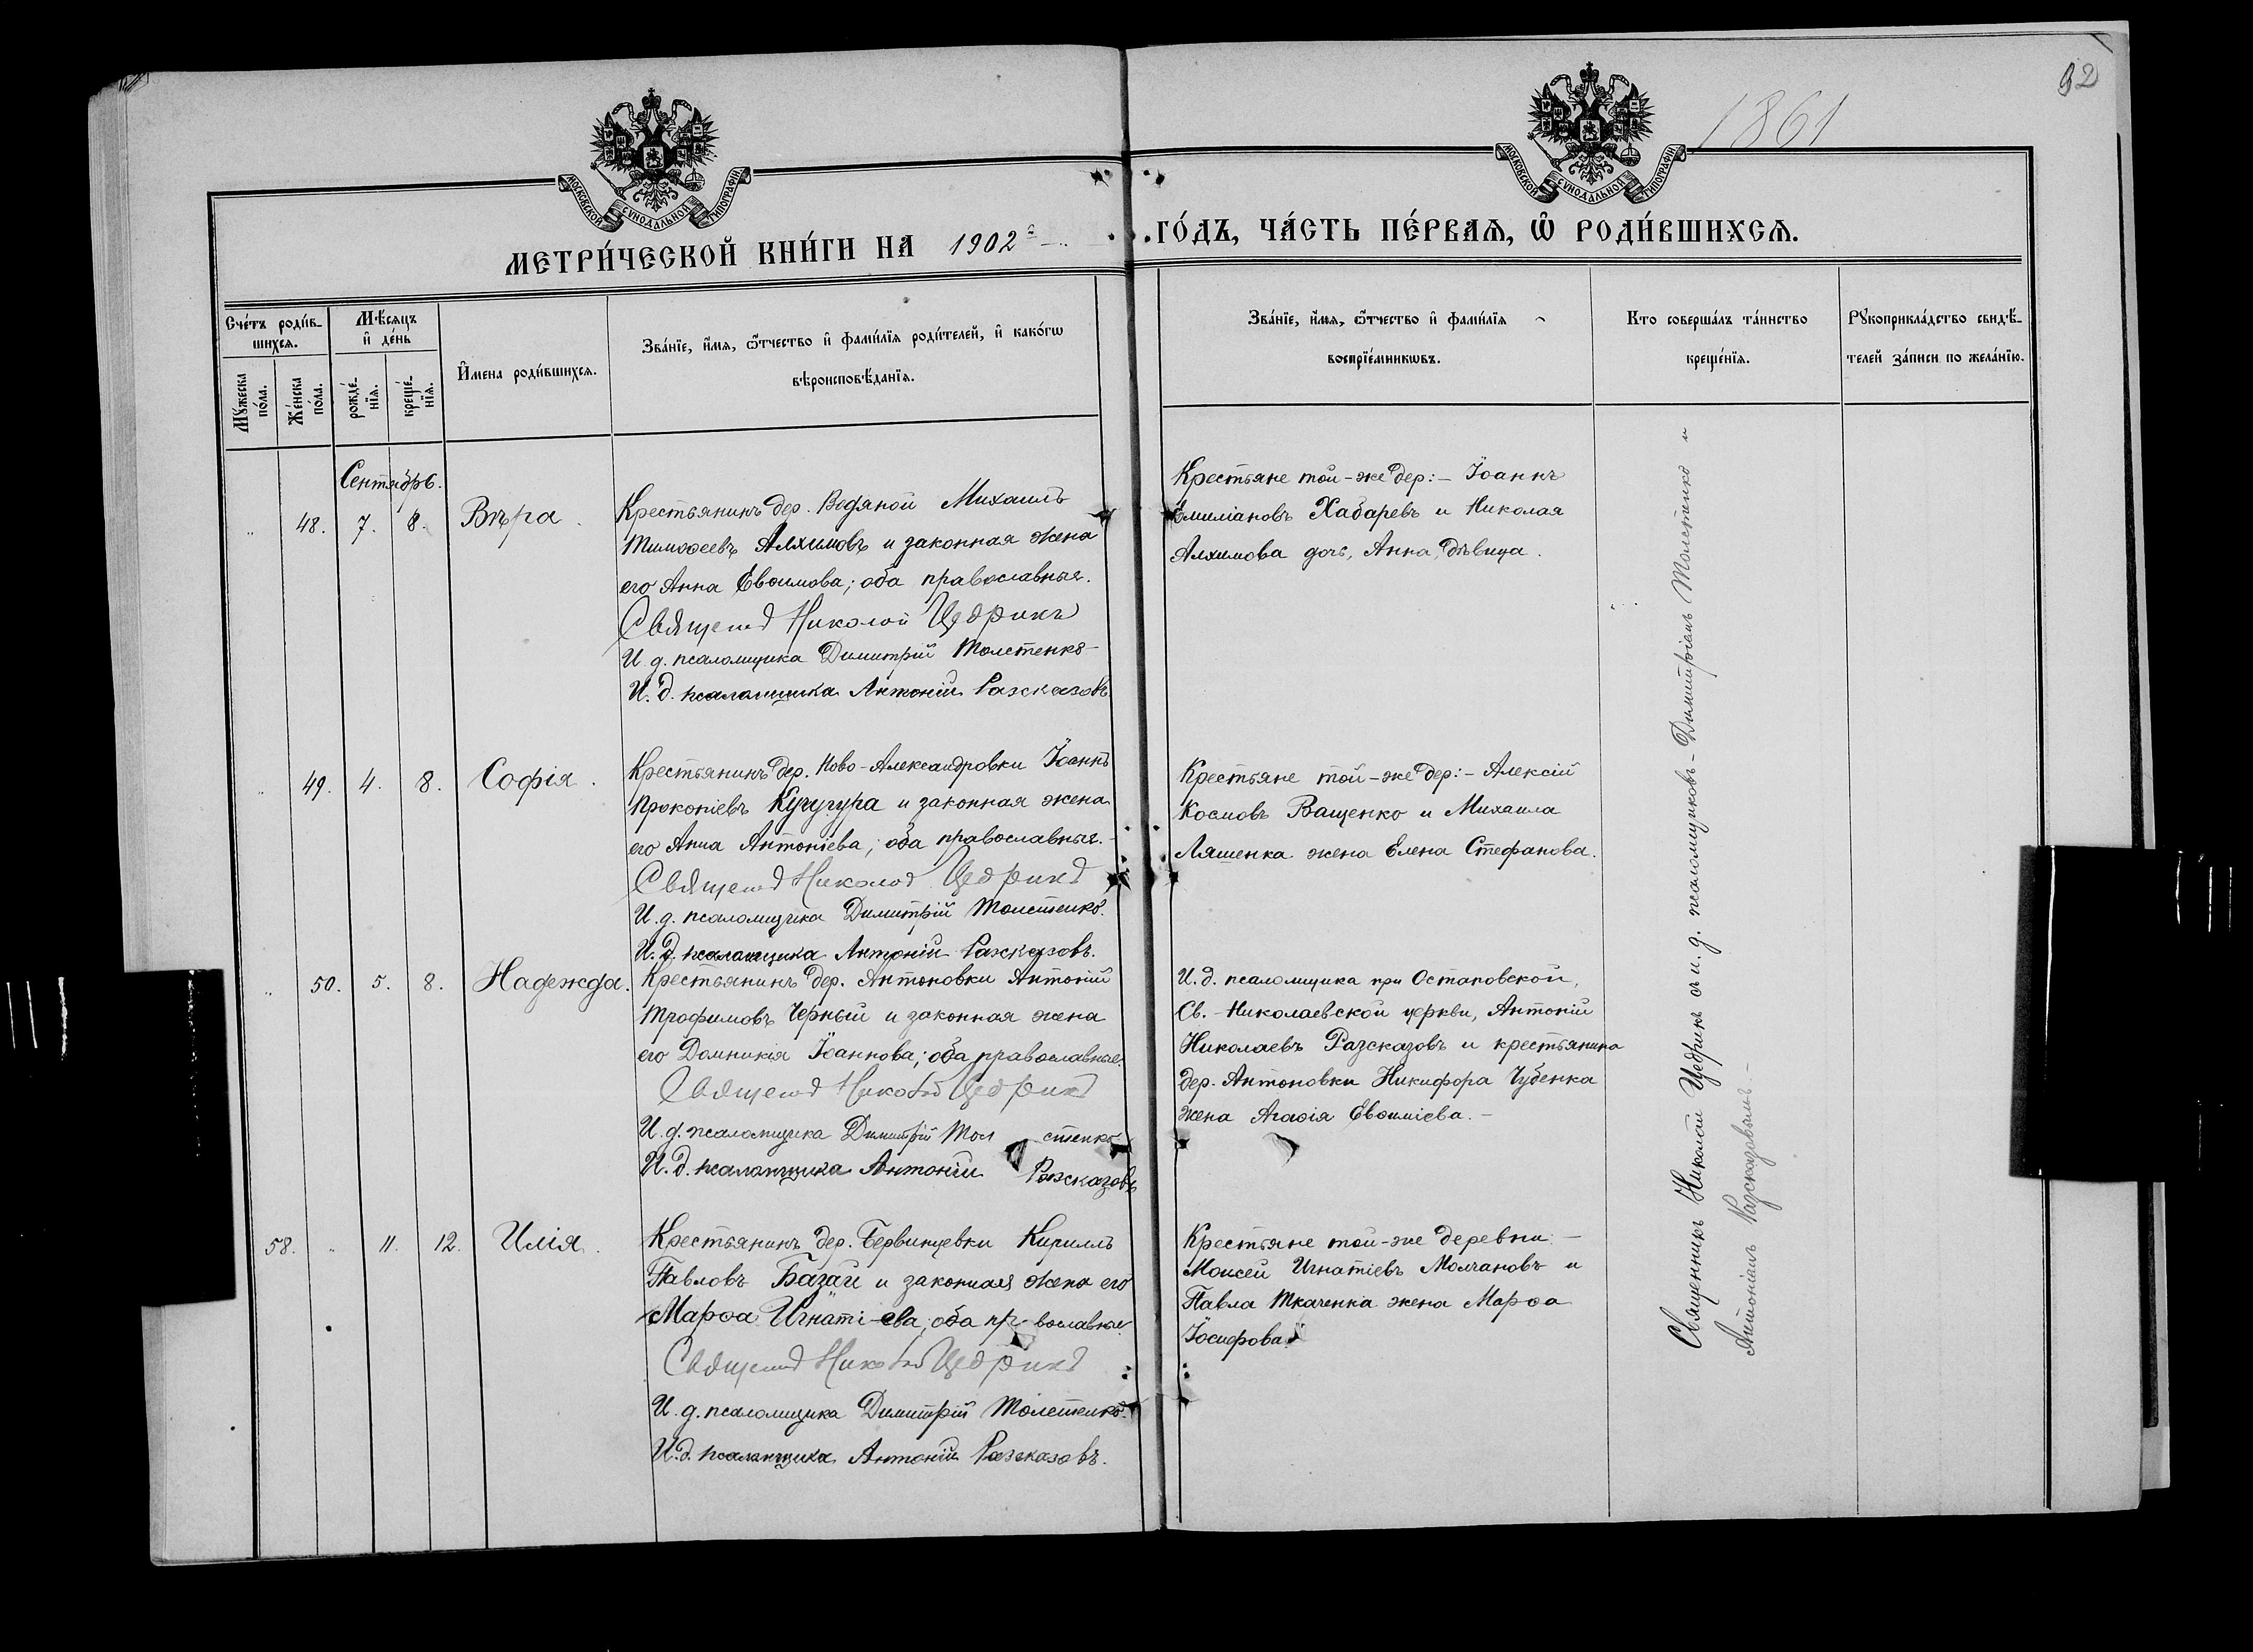 92
1861
МОСКОВСКОЙ СѴНОДАЛЬНОЙ ТИПОГРАФІИ
МОСКОВСКОЙ СѴНОДАЛЬНОЙ ТИПОГРАФІИ
МЕТРИ́ЧЕСКОЙ КНИ́ГИ НА 1902 ГО́ДЪ, ЧА́СТЬ ПЕ́РВАѦ, Ѡ҆ РОДИ́ВШИХСѦ.
Сче́тъ роди́в-
шихсѧ.
Мꙋ́жеска по́ла.
Же́нска по́ла.
Мѣ́сѧцъ
и҆ де́нь
рожде́-
нїѧ.
креще́-
нїѧ.
И҆мена роди́вшихсѧ.
Зва́нїе, и҆́мѧ, ѻ҆́тчество и҆ фами́лїѧ роди́телей, и҆ како́гѡ
вѣроисповѣ́данїѧ.
Зва́нїе, и҆́мѧ, ѻ҆́тчество и҆ фами́лїѧ
воспрїе́мникѡвъ.
Кто соверша́лъ та́инство
креще́нїѧ.
Рꙋкоприкла́дство свидѣ́-
телей за́писи по жела́нїю.
Сентябрь.
" 48. 7. 8. Вѣра.
Крестьянинъ дер. Водяной Михаилъ
Тимоѳеевъ Алхимовъ и законная жена
его Анна Евѳимова; оба православные.
Священ Николай Цедрикъ
И. д. псаломщика Димитрій Толстенко
И. д. псаломщика Антоній Разсказовъ
Крестьяне той-же дер:- Іоаннъ
Емиліановъ Хабаревъ и Николая
Алхимова дочь, Анна, дѣвица.
" 49. 4. 8. Софія.
Крестьянинъ дер. Ново-Александровки Іоаннъ
Прокопіевъ Кучугура и законная жена
его Анна Антоніева; оба православные.-
Священ Николай Цедрикъ
И. д. псаломщика Димитрій Толстенко.
И. д. псаломщика Антоній Разсказовъ.
Крестьяне той-же дер:- Алексій
Космовъ Ващенко и Михаила
Ляшенка жена Елена Стефанова.
" 50. 5. 8. Надежда.
Крестьянинъ дер. Антоновки Антоній
Трофимовъ Черный и законная жена
его Домникія Іоаннова; оба православные.
Священ Николай Цедрикъ
И. д. псаломщика Димитрій Толстенко
И. д. псаломщика Антоній Разсказовъ
И. д. псаломщика при Остаповской,
Св.-Николаевской церкви, Антоній
Николаевъ Разсказовъ и крестьянина
дер. Антоновки Никифора Чубенка
жена Агаѳія Евѳиміева.-
58. " 11. 12. Илія.
Крестьянинъ дер. Бервинцевки Кириллъ
Павловъ Базай и законная жена его
Марѳа Игнатіева; оба православные.
Священ Николай Цедрикъ
И. д. псаломщика Димитрій Толстенко.
И. д. псаломщика Антоній Разсказовъ.
Крестьяне той-же деревни:-
Моисей Игнатіевъ Молчановъ и
Павла Ткаченка жена Марѳа
Іосифова.
Священникъ Николай Цедрикъ съ и. д. псаломщиковъ- Димитріемъ Толстенко и
Антоніемъ Разсказовымъ.-